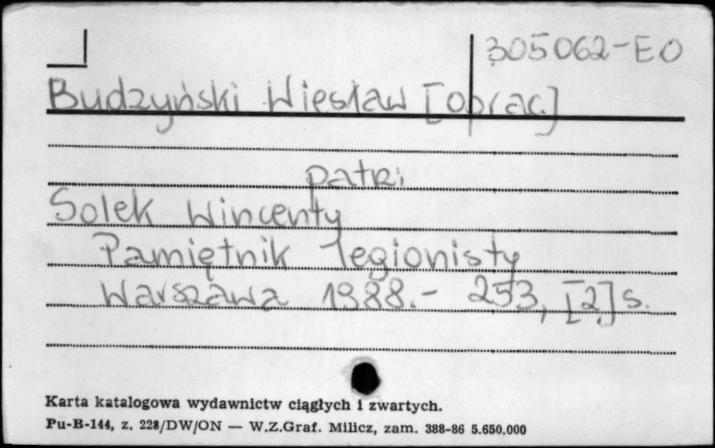 305062-EO
Budzyński Wiesław [oprac.]
patrz:
Solek Wincenty
Pamiętnik legionisty
Warszawa 1988.- 253, [2] s.
Karta katalogowa wydawnictw ciągłych i zwartych.
Pu-B-144, z. 228/DW/ON — W.Z.Graf. Milicz, zam. 388-86 5.650.000